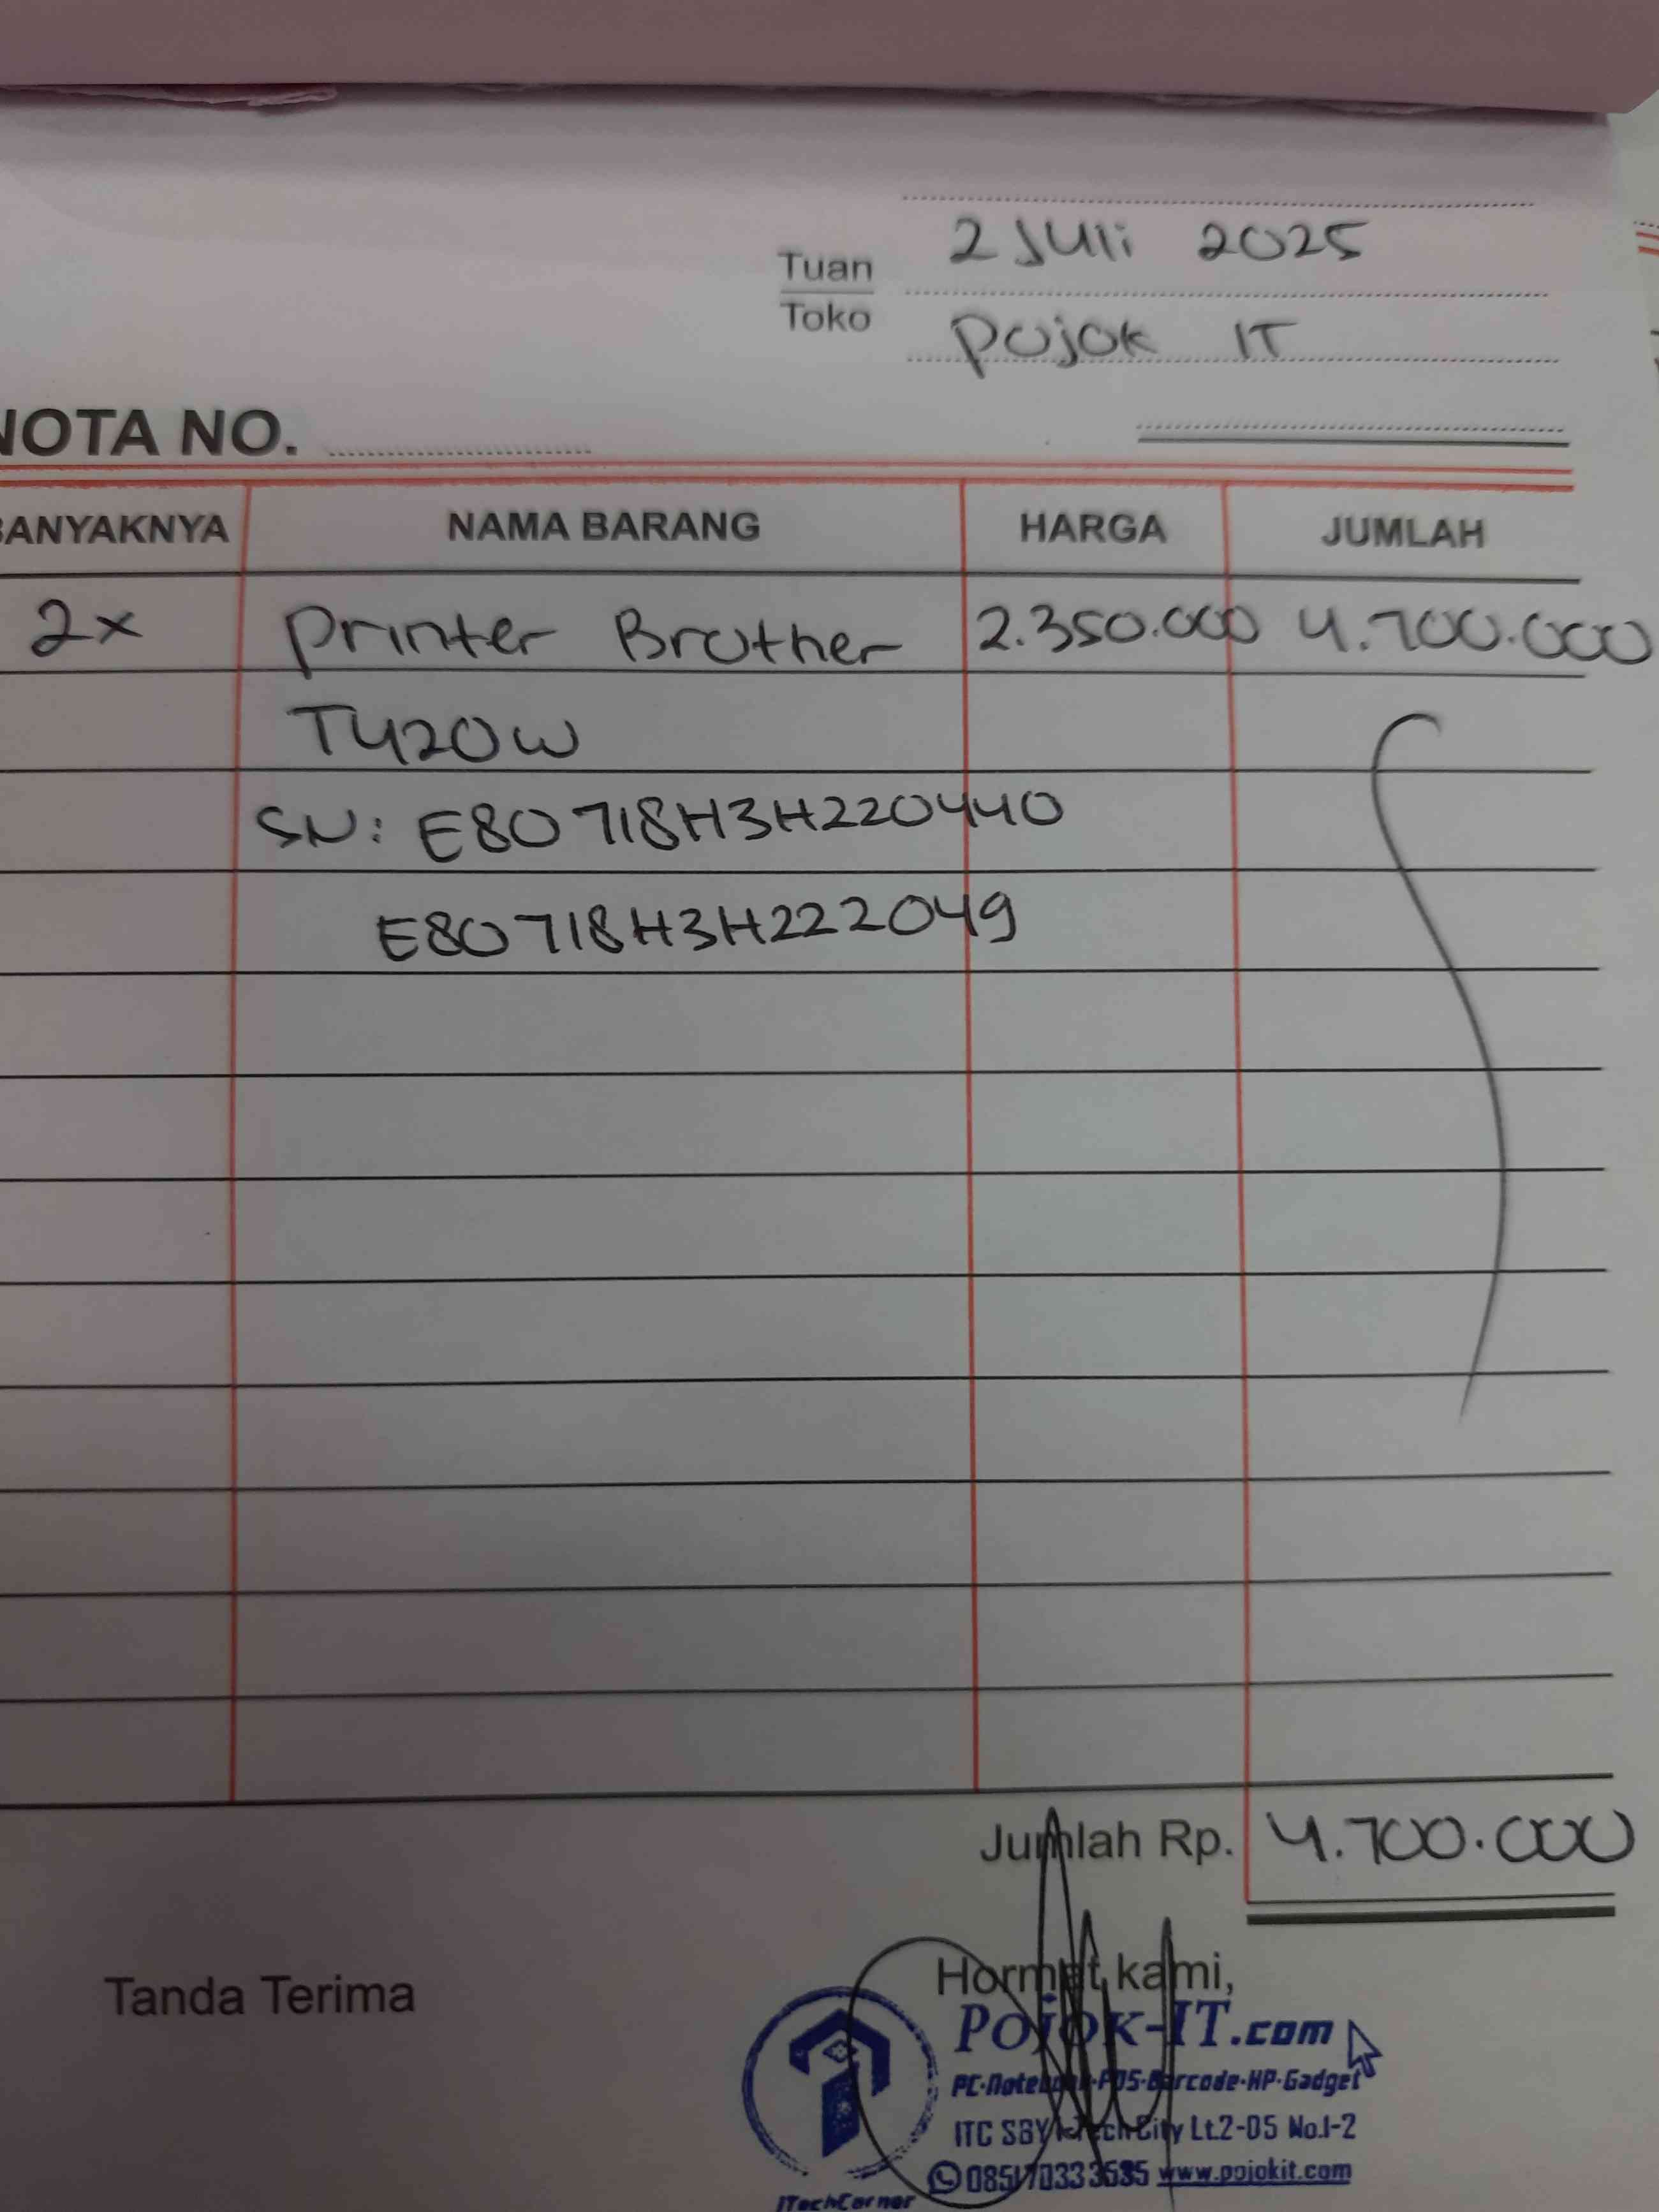 2 Juli 2025
Tuan
Toko
Pojok IT
NOTA NO.
BANYAKNYA NAMA BARANG HARGA JUMLAH
2x Printer Brother 2.350.000 4.700.000
T420W
SN: E80718H3H220440
E80718H3H222049
Jumlah Rp. 4.700.000
Tanda Terima
Hormat kami,
POJOK-IT.com
PC-Notebook-POS-Barcode-HP-Gadget
ITC SBY Lt.2-05 No.1-2
www.pojokit.com
ITechCorner